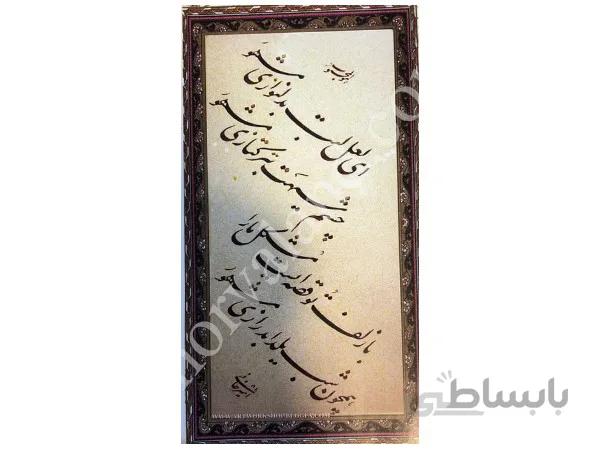 هوالمحبوب
ای لعل لبت بدلنوازی مشهور
چشم سیهت بترکتازی مشهور
با زلف تو قصه ایست مشکل ما را
همچون شب یلدا بدرازی مشهور
WWW.ARTWORKSHOP.BLOGFA.COM
بابساطی